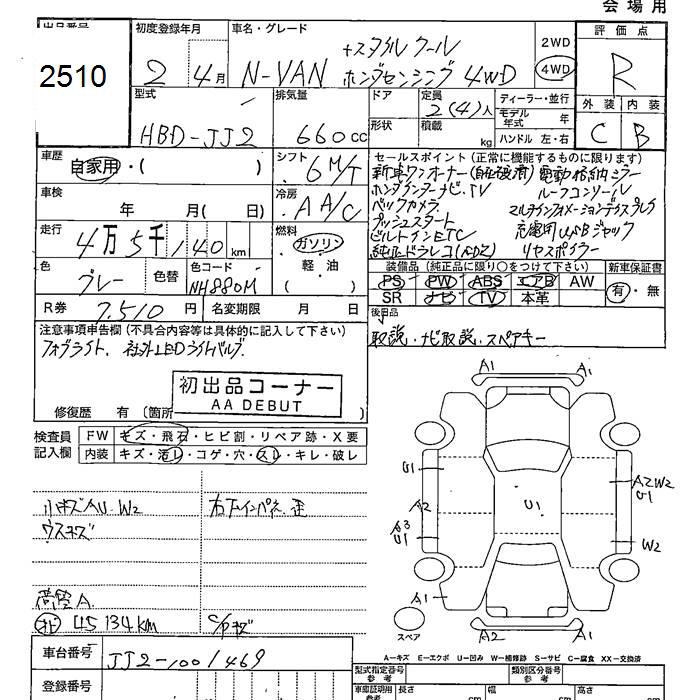 会場用
出品番号
2510
初度登録年月
2年4月
車名・グレード
N-VAN
+スタイル クール
ホンダセンシング 4WD
2WD
4WD
評価点
R
外装 内装
C B
型式
HBD-JJ2
排気量
660cc
ドア
形状
定員
2(4)人
積載
kg
ディーラー・並行
モデル年式 年
ハンドル 左・右
車歴
自家用・( )
シフト
6M/T
車検
年 月( 日)
冷房
AA/C
走行
4万5千140km
燃料
ガソリン
軽・油
色
グレー
色替
色コード
NH880M
R券
7,510円
名変期限 月 日
セールスポイント (正常に機能するものに限ります)
新車ワンオーナー
電動格納ミラー
ホンダインターナビ、TV
ルーフコンソール
バックカメラ
マルチインフォメーションディスプレイ
プッシュスタート
充電用USBジャック
ビルトインETC
リヤスポイラー
純正ドラレコ
装備品 (純正品に限り○をつけて下さい)
PS PW ABS エアB AW
SR ナビ TV 本革
新車保証書
有・無
後日品
取説・ナビ取説・スペアキー
注意事項申告欄 (不具合内容等は具体的に記入して下さい)
フォグライト、社外LEDライトバルブ
初出品コーナー
AA DEBUT
修復歴 有 (箇所 )
検査員記入欄
FW キズ・飛石・ヒビ割・リペア跡・X要
内装 キズ・汚レ・コゲ・穴・スレ・キレ・破レ
小キズAU W2
右下インパネ歪
ウスキズ
45134km
車台番号
JJ2-1001469
登録番号
A1
A1
U1
A2
A3
U1
A1
U1
A2 W2
U1
W2
A1
A2
スペア
A―キズ E―エクボ U―凹み W―補修跡 S―サビ C―腐食 XX―交換済
型式指定番号
参考
類別区分番号
参考
車庫証明用
参考
長さ
cm
幅
cm
高さ
cm